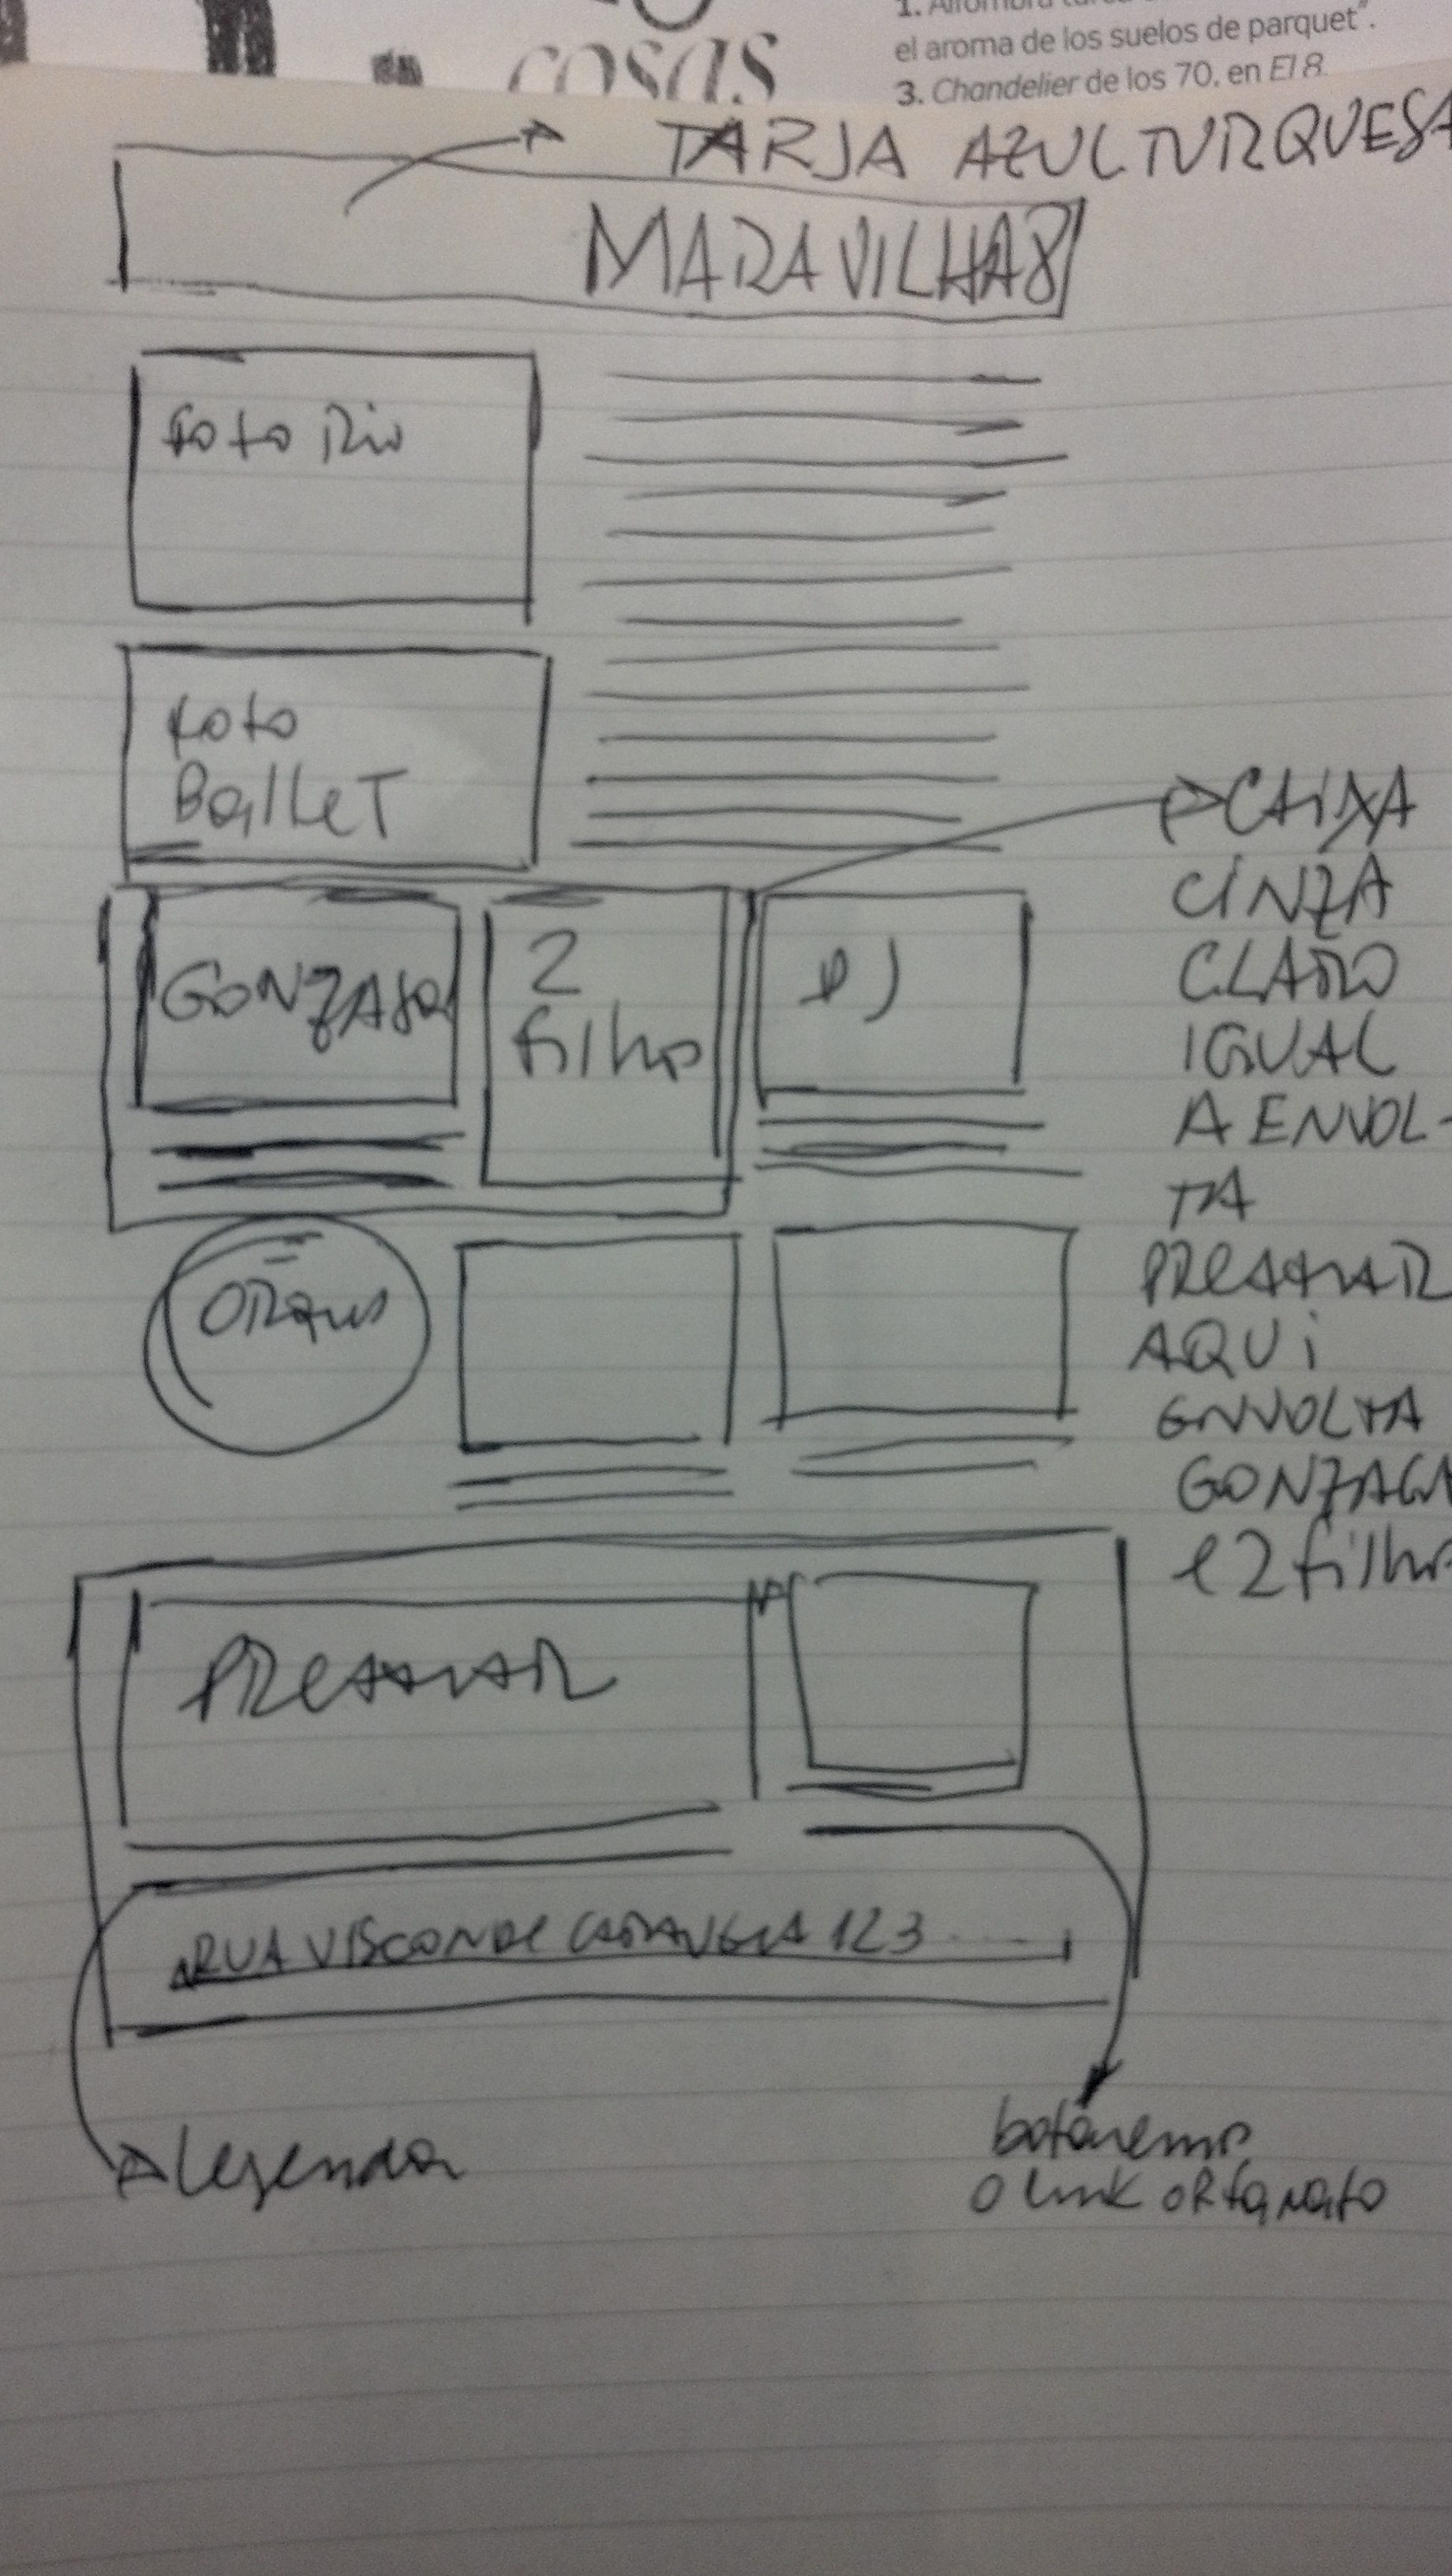 cosas
el aroma de los suelos de parquet".
3. Chandelier de los 70, en El 8.
TARJA AZUL TURQUESA
MARAVILHAS
foto Rio
foto
Ballet
GONZAGA
2
filhos
DJ
CAIXA
CINZA
CLARO
IGUAL
A ENVOL-
TA
PREAMAR
AQUI
ENVOLTA
GONZAGA
e 2 filhos
PREAMAR
RUA VISCONDE 123
Legenda
o link